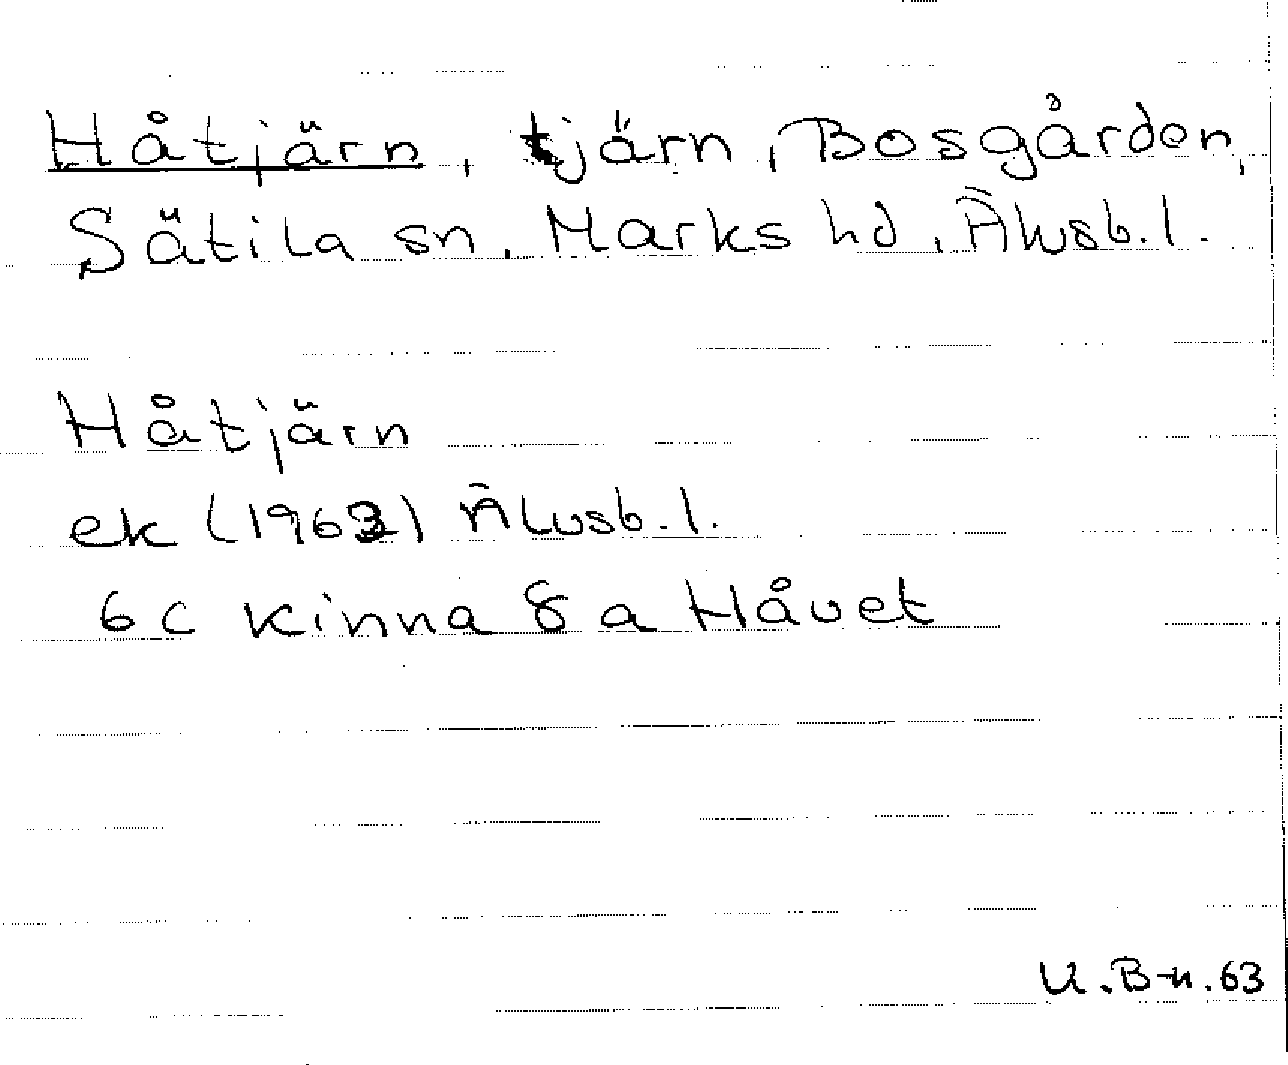 Håtjärn, tjärn, Bosgården,
Sätila sn, Marks hd, Älvsb.l.
Håtjärn
ek (1963) Älvsb.l.
6 C Kinna 8 a Håvet
U.B-n.63